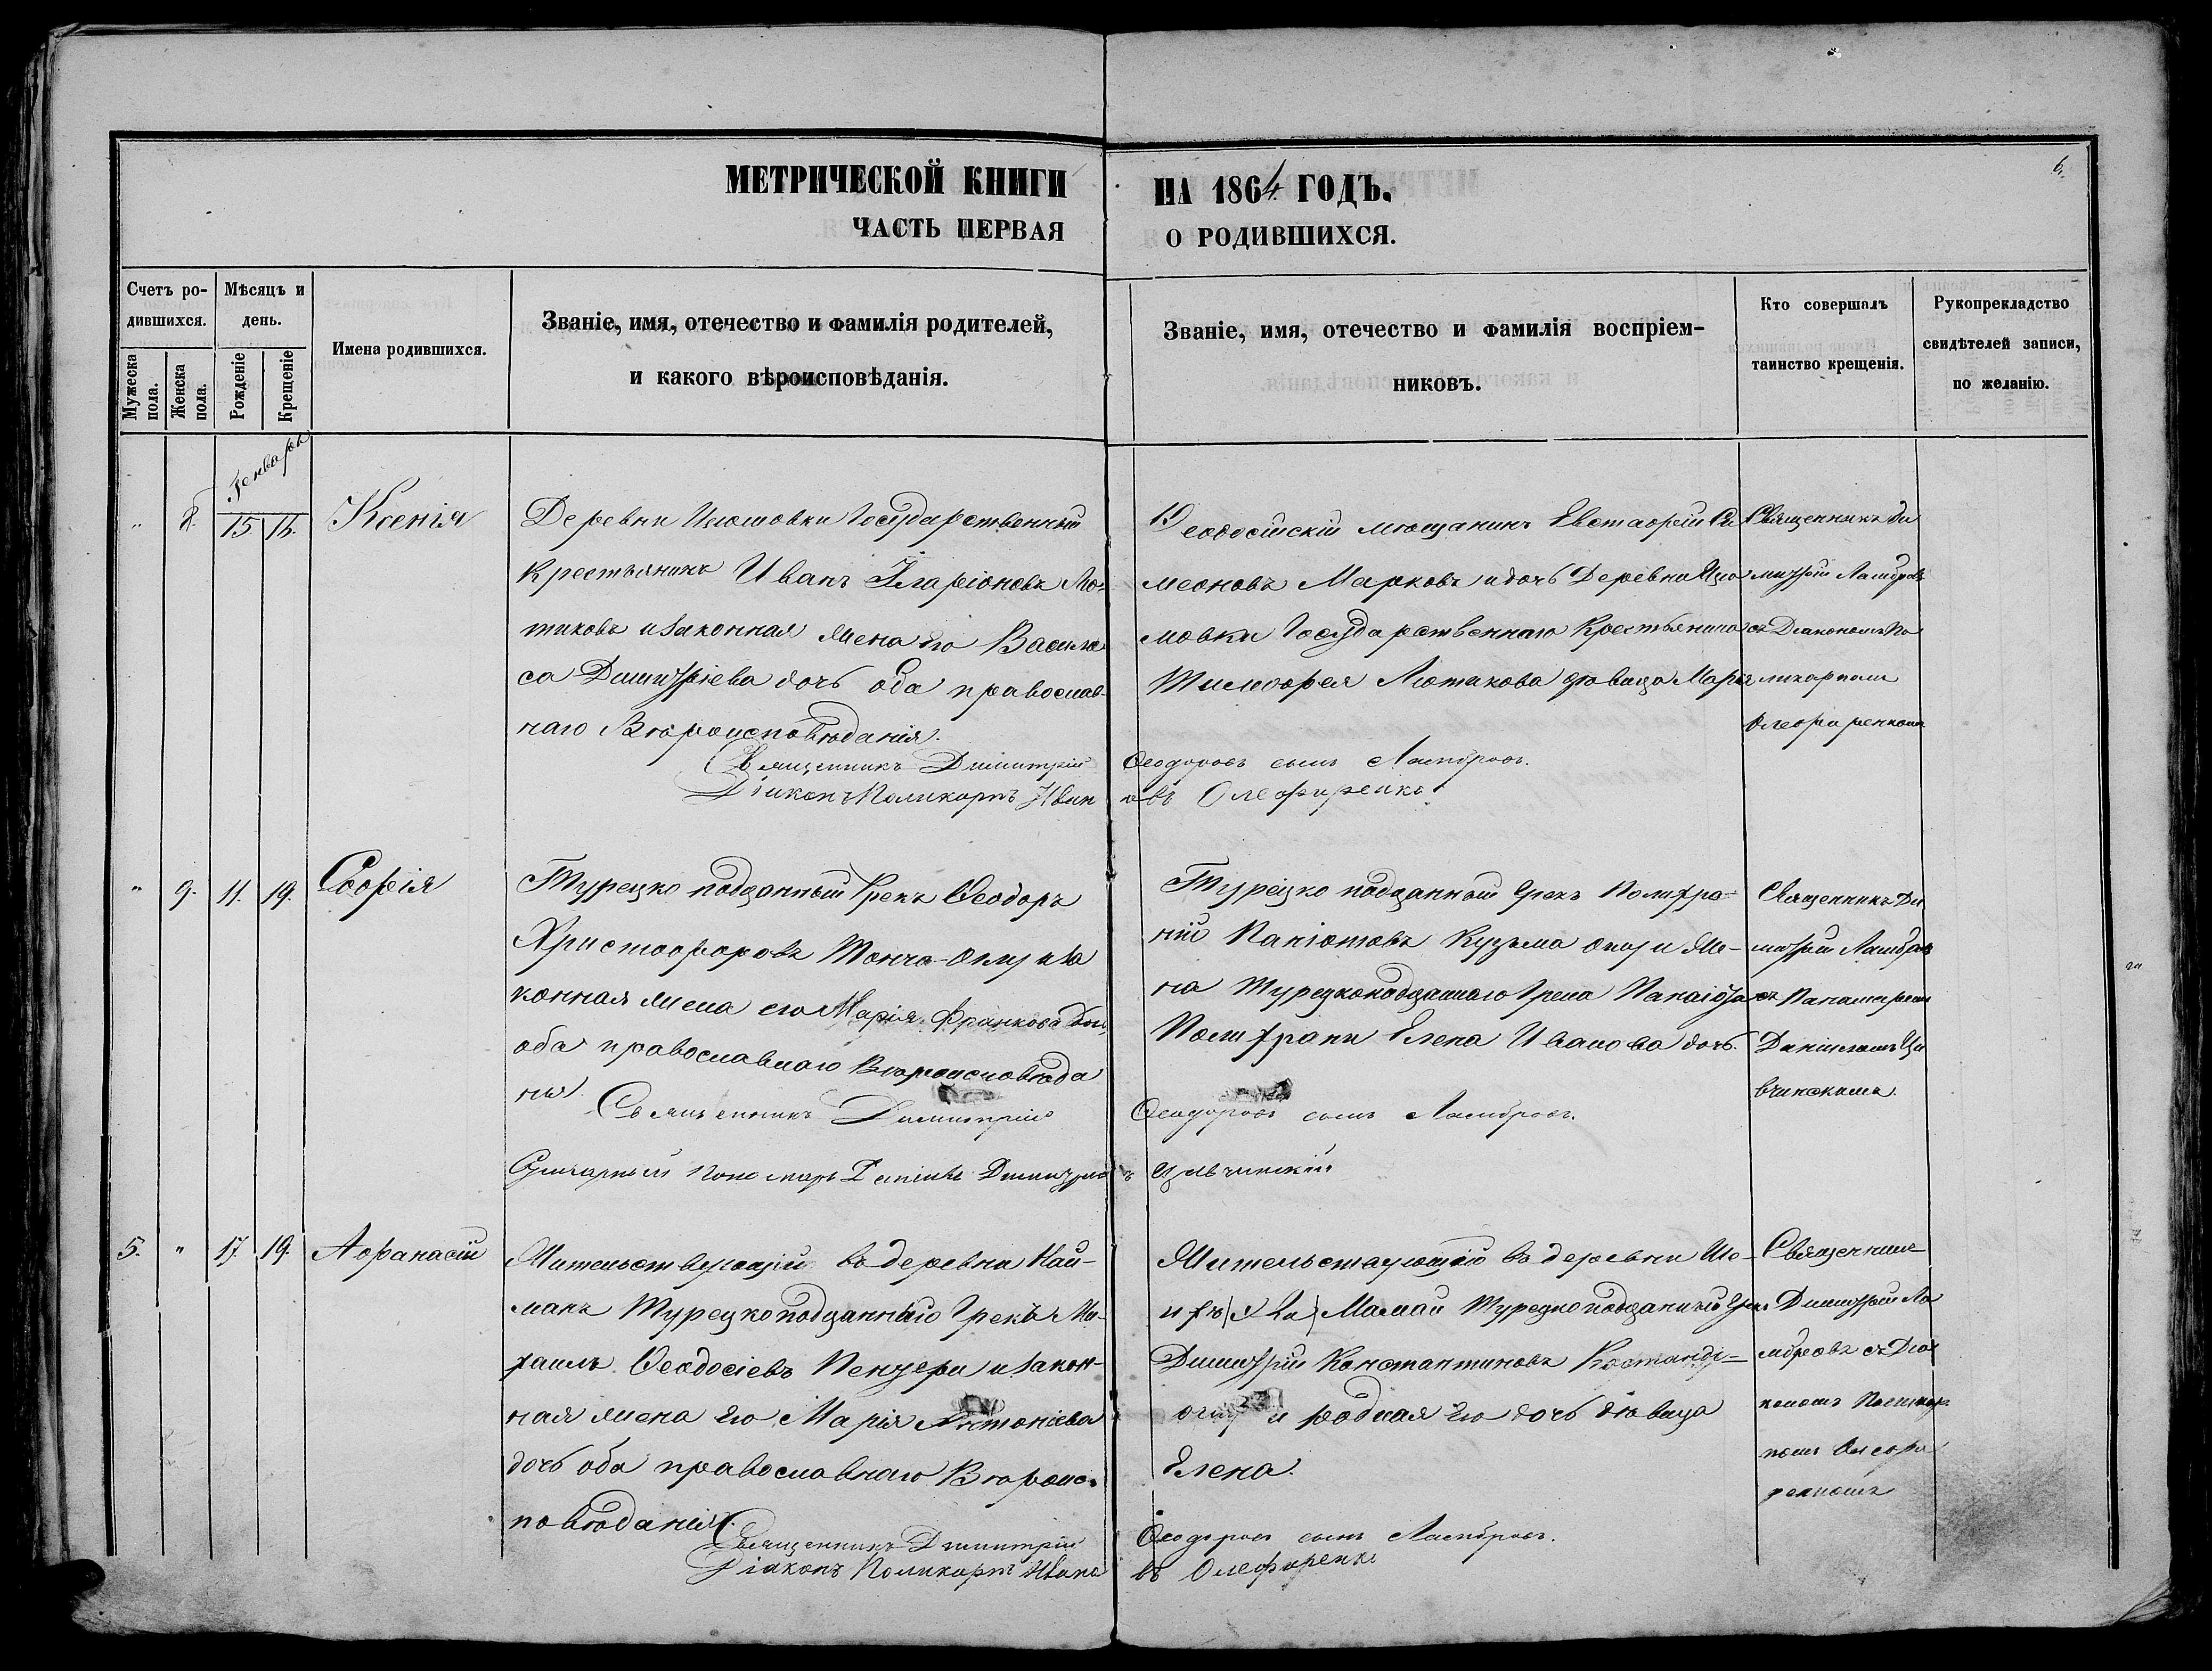 МЕТРИЧЕСКОЙ КНИГИ
ЧАСТЬ ПЕРВАЯ
НА 1864 ГОДЪ.
О РОДИВШИХСЯ.
6.
Счетъ ро-
дившихся.
Мужеска
пола.
Женска
пола.
Мѣсяцъ и
день.
Рожденіе
Крещеніе
Имена родившихся.
Званіе, имя, отечество и фамилія родителей,
и какого вѣроисповѣданія.
Званіе, имя, отечество и фамилія воспріем-
никовъ.
Кто совершалъ
таинство крещенія.
Рукоприкладство
свидѣтелей записи,
по желанію.
Генварь
" 8. 15. 16. Ксенія
Деревни Государственный
крестьянинъ Иванъ Иларіоновъ Лю-
тиковъ и законная жена его Васили
са Димитріева дочь оба православ-
наго Вѣроисповѣданія.
Священникъ Димитрій
Діаконъ Поликарпъ Иван
Ѳеодосійскій мѣщанинъ Евстафій Си
меоновъ Марковъ и дочь Деревни
мовки Государственнаго Крестьянина
Тимофея Лютикова дѣвица Марія
Ѳеодоровъ сынъ Ламбровъ.
овъ Олефиренко
Священникъ Ди
митрій Ламбровъ
съ Діакономъ По
ликарпомъ
Олефиренкомъ
" 9. 11. 19. Софія
Турецко подданный Грекъ Ѳеодоръ
Христофоровъ Тонча-Оглу и за
конная жена его Марія Франкова дочь
оба православнаго Вѣроисповѣда
нія.
Священникъ Димитрій
Пономарь Димитріе
Турецко подданный Грекъ Полихро-
ній Паніотовъ Кузьма оглу и Же-
на Турецкоподданнаго Грека
Полихрани Елена Иванова дочь.
Ѳеодоровъ сынъ Ламбровъ.
въ
Священникъ Ди
митрій Ламбровъ
съ Панамаремъ
5. " 17. 19. Афанасій
Жительствующій въ деревни Най-
манъ Турецкоподданный Грекъ Ми-
хаилъ Ѳеодосіевъ Пенчери и закон-
ная жена его Марія Антоніева
дочь оба православнаго Вѣроис-
повѣданія.
Священникъ Димитрій
Діаконъ Поликарпъ Ивано
Жительствующій въ деревни Ше-
ихъ Мамай Турецкоподданный Грекъ
Димитрій Константиновъ Костанди-
оглу и родная его дочь дѣвица
Елена.
Ѳеодоровъ сынъ Ламбровъ.
въ Олефиренко
Священникъ
Димитрій Ла
мбровъ съ Діа
кономъ Поликар
помъ Олефи
ренкомъ